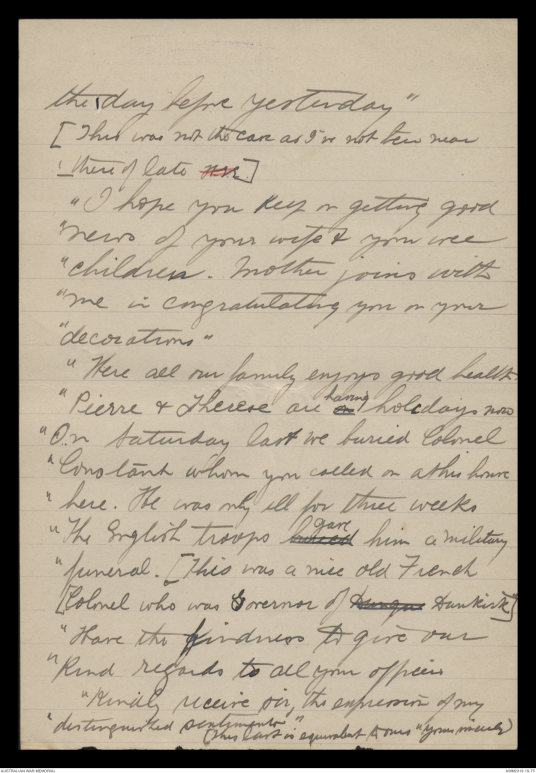 the day before yesterday"
[This was not the case as I've not been near
there of late]
"I hope you keep on getting good
"news of your wife & your wee
"children. Mother joins with
"me in congratulating you on your
"decorations"
"Here all our family enjoys good health
"Pierre & Therese are having holidays now
"On Saturday last we buried Colonel
"Constant whom you called on at his house
"here. He was only ill for three weeks
"The English troops gave him a military
"funeral. [This was a nice old French
[Colonel who was Governor of Dunkirk"]
"Have the kindness to give our
"Kind regards to all your officers
"Kindly receive sir, the expression of my
"distinguished sentiments"
(This last is equivalent to ours "yours sincerely)
AUSTRALIAN WAR MEMORIAL